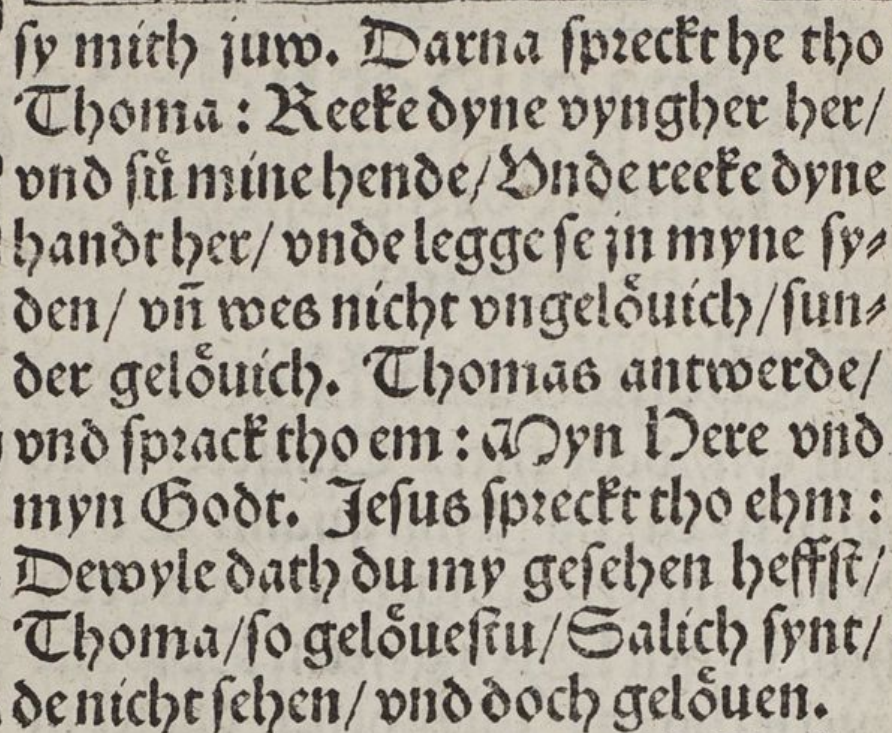 sy mith juw. Darna ſpreckt he tho
Thoma: Reeke dyne vyngher her/
vnd ſuͤ mine hende/Vnde reeke dyne
handt her/ vnde legge ſe jn myne ſy⸗
den/ vñ wes nicht vngeloͤuich/ſun⸗
der geloͤuich. Thomas antwerde/
vnd ſprack tho em: Myn Here vnd
myn Godt. Jeſus ſpreckt tho ehm:
Dewyle dath du my geſehen heffſt/
Thoma/ſo geloͤueſtu/Salich ſynt/
de nicht ſehen/ vnd doch geloͤuen.